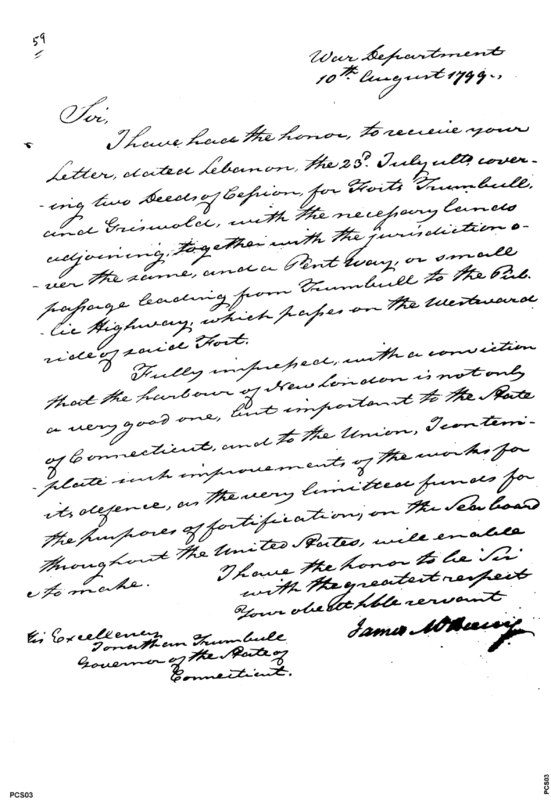 59
War Department
10th. August 1799.,
Sir,
I have had the honor, to receive your
Letter, dated Lebanon, the 23d. July ulto. cover-
-ing two Deeds of Cession, for Forts Trumbull,
and Griswold, with the necessary lands
adjoining, together with the jurisdiction o-
-ver the same, and a Pent Way, or small
passage leading from Trumbull to the Pub-
-lic Highway, which passes on the Westward
side of said Fort.
Fully impressed, with a conviction
that the harbour of New London is not only
a very good one, but important to the State
of Connecticut, and to the Union, I contem-
-plate such improvements of the works for
its, defence, as the very limitted funds for
the purposes of fortification, on the Sea board
throughout the United States, will enable
to make.
I have the honor to be Sir
with the greatest respect
Your obedt hble servant
James McHenry
His Excellency
Jonathan Trumbull
Governor of the State of
Connecticut.
PCS03
PCS03